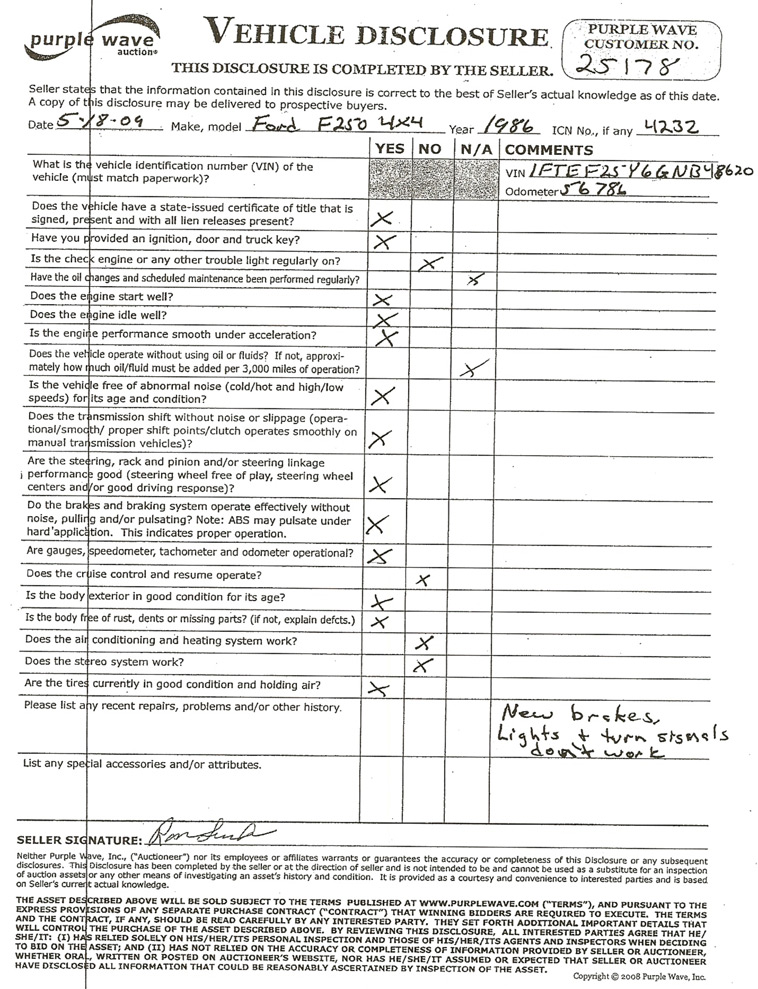 purple wave
auction®
VEHICLE DISCLOSURE
THIS DISCLOSURE IS COMPLETED BY THE SELLER.
PURPLE WAVE
CUSTOMER NO.
25178
Seller states that the information contained in this disclosure is correct to the best of Seller's actual knowledge as of this date.
A copy of this disclosure may be delivered to prospective buyers.
Date 5-18-09 Make, model Ford F250 4x4 Year 1986 ICN No., if any 4232
YES NO N/A COMMENTS
What is the vehicle identification number (VIN) of the
vehicle (must match paperwork)?
VIN 1FTEF25Y6GNB48620
Odometer 56786
Does the vehicle have a state-issued certificate of title that is
signed, present and with all lien releases present? X
Have you provided an ignition, door and truck key? X
Is the check engine or any other trouble light regularly on? X
Have the oil changes and scheduled maintenance been performed regularly? X
Does the engine start well? X
Does the engine idle well? X
Is the engine performance smooth under acceleration? X
Does the vehicle operate without using oil or fluids? If not, approxi-
mately how much oil/fluid must be added per 3,000 miles of operation? X
Is the vehicle free of abnormal noise (cold/hot and high/low
speeds) for its age and condition? X
Does the transmission shift without noise or slippage (opera-
tional/smooth/ proper shift points/clutch operates smoothly on
manual transmission vehicles)? X
Are the steering, rack and pinion and/or steering linkage
performance good (steering wheel free of play, steering wheel
centers and/or good driving response)? X
Do the brakes and braking system operate effectively without
noise, pulling and/or pulsating? Note: ABS may pulsate under
hard application. This indicates proper operation. X
Are gauges, speedometer, tachometer and odometer operational? X
Does the cruise control and resume operate? X
Is the body exterior in good condition for its age? X
Is the body free of rust, dents or missing parts? (if not, explain defcts.) X
Does the air conditioning and heating system work? X
Does the stereo system work? X
Are the tires currently in good condition and holding air? X
Please list any recent repairs, problems and/or other history.
New brakes,
Lights + turn signals
don't work
List any special accessories and/or attributes.
SELLER SIGNATURE:
Neither Purple Wave, Inc., ("Auctioneer") nor its employees or affiliates warrants or guarantees the accuracy or completeness of this Disclosure or any subsequent
disclosures. This Disclosure has been completed by the seller or at the direction of seller and is not intended to be and cannot be used as a substitute for an inspection
of auction assets or any other means of investigating an asset's history and condition. It is provided as a courtesy and convenience to interested parties and is based
on Seller's current actual knowledge.
THE ASSET DESCRIBED ABOVE WILL BE SOLD SUBJECT TO THE TERMS PUBLISHED AT WWW.PURPLEWAVE.COM ("TERMS"), AND PURSUANT TO THE
EXPRESS PROVISIONS OF ANY SEPARATE PURCHASE CONTRACT ("CONTRACT") THAT WINNING BIDDERS ARE REQUIRED TO EXECUTE. THE TERMS
AND THE CONTRACT, IF ANY, SHOULD BE READ CAREFULLY BY ANY INTERESTED PARTY. THEY SET FORTH ADDITIONAL IMPORTANT DETAILS THAT
WILL CONTROL THE PURCHASE OF THE ASSET DESCRIBED ABOVE. BY REVIEWING THIS DISCLOSURE, ALL INTERESTED PARTIES AGREE THAT HE/
SHE/IT: (I) HAS RELIED SOLELY ON HIS/HER/ITS PERSONAL INSPECTION AND THOSE OF HIS/HER/ITS AGENTS AND INSPECTORS WHEN DECIDING
TO BID ON THE ASSET; AND (II) HAS NOT RELIED ON THE ACCURACY OR COMPLETENESS OF INFORMATION PROVIDED BY SELLER OR AUCTIONEER,
WHETHER ORAL, WRITTEN OR POSTED ON AUCTIONEER'S WEBSITE, NOR HAS HE/SHE/IT ASSUMED OR EXPECTED THAT SELLER OR AUCTIONEER
HAVE DISCLOSED ALL INFORMATION THAT COULD BE REASONABLY ASCERTAINED BY INSPECTION OF THE ASSET.
Copyright © 2008 Purple Wave, Inc.